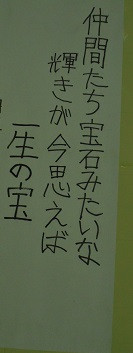 仲間たち宝石みたいな
輝きが今思えば
一生の宝